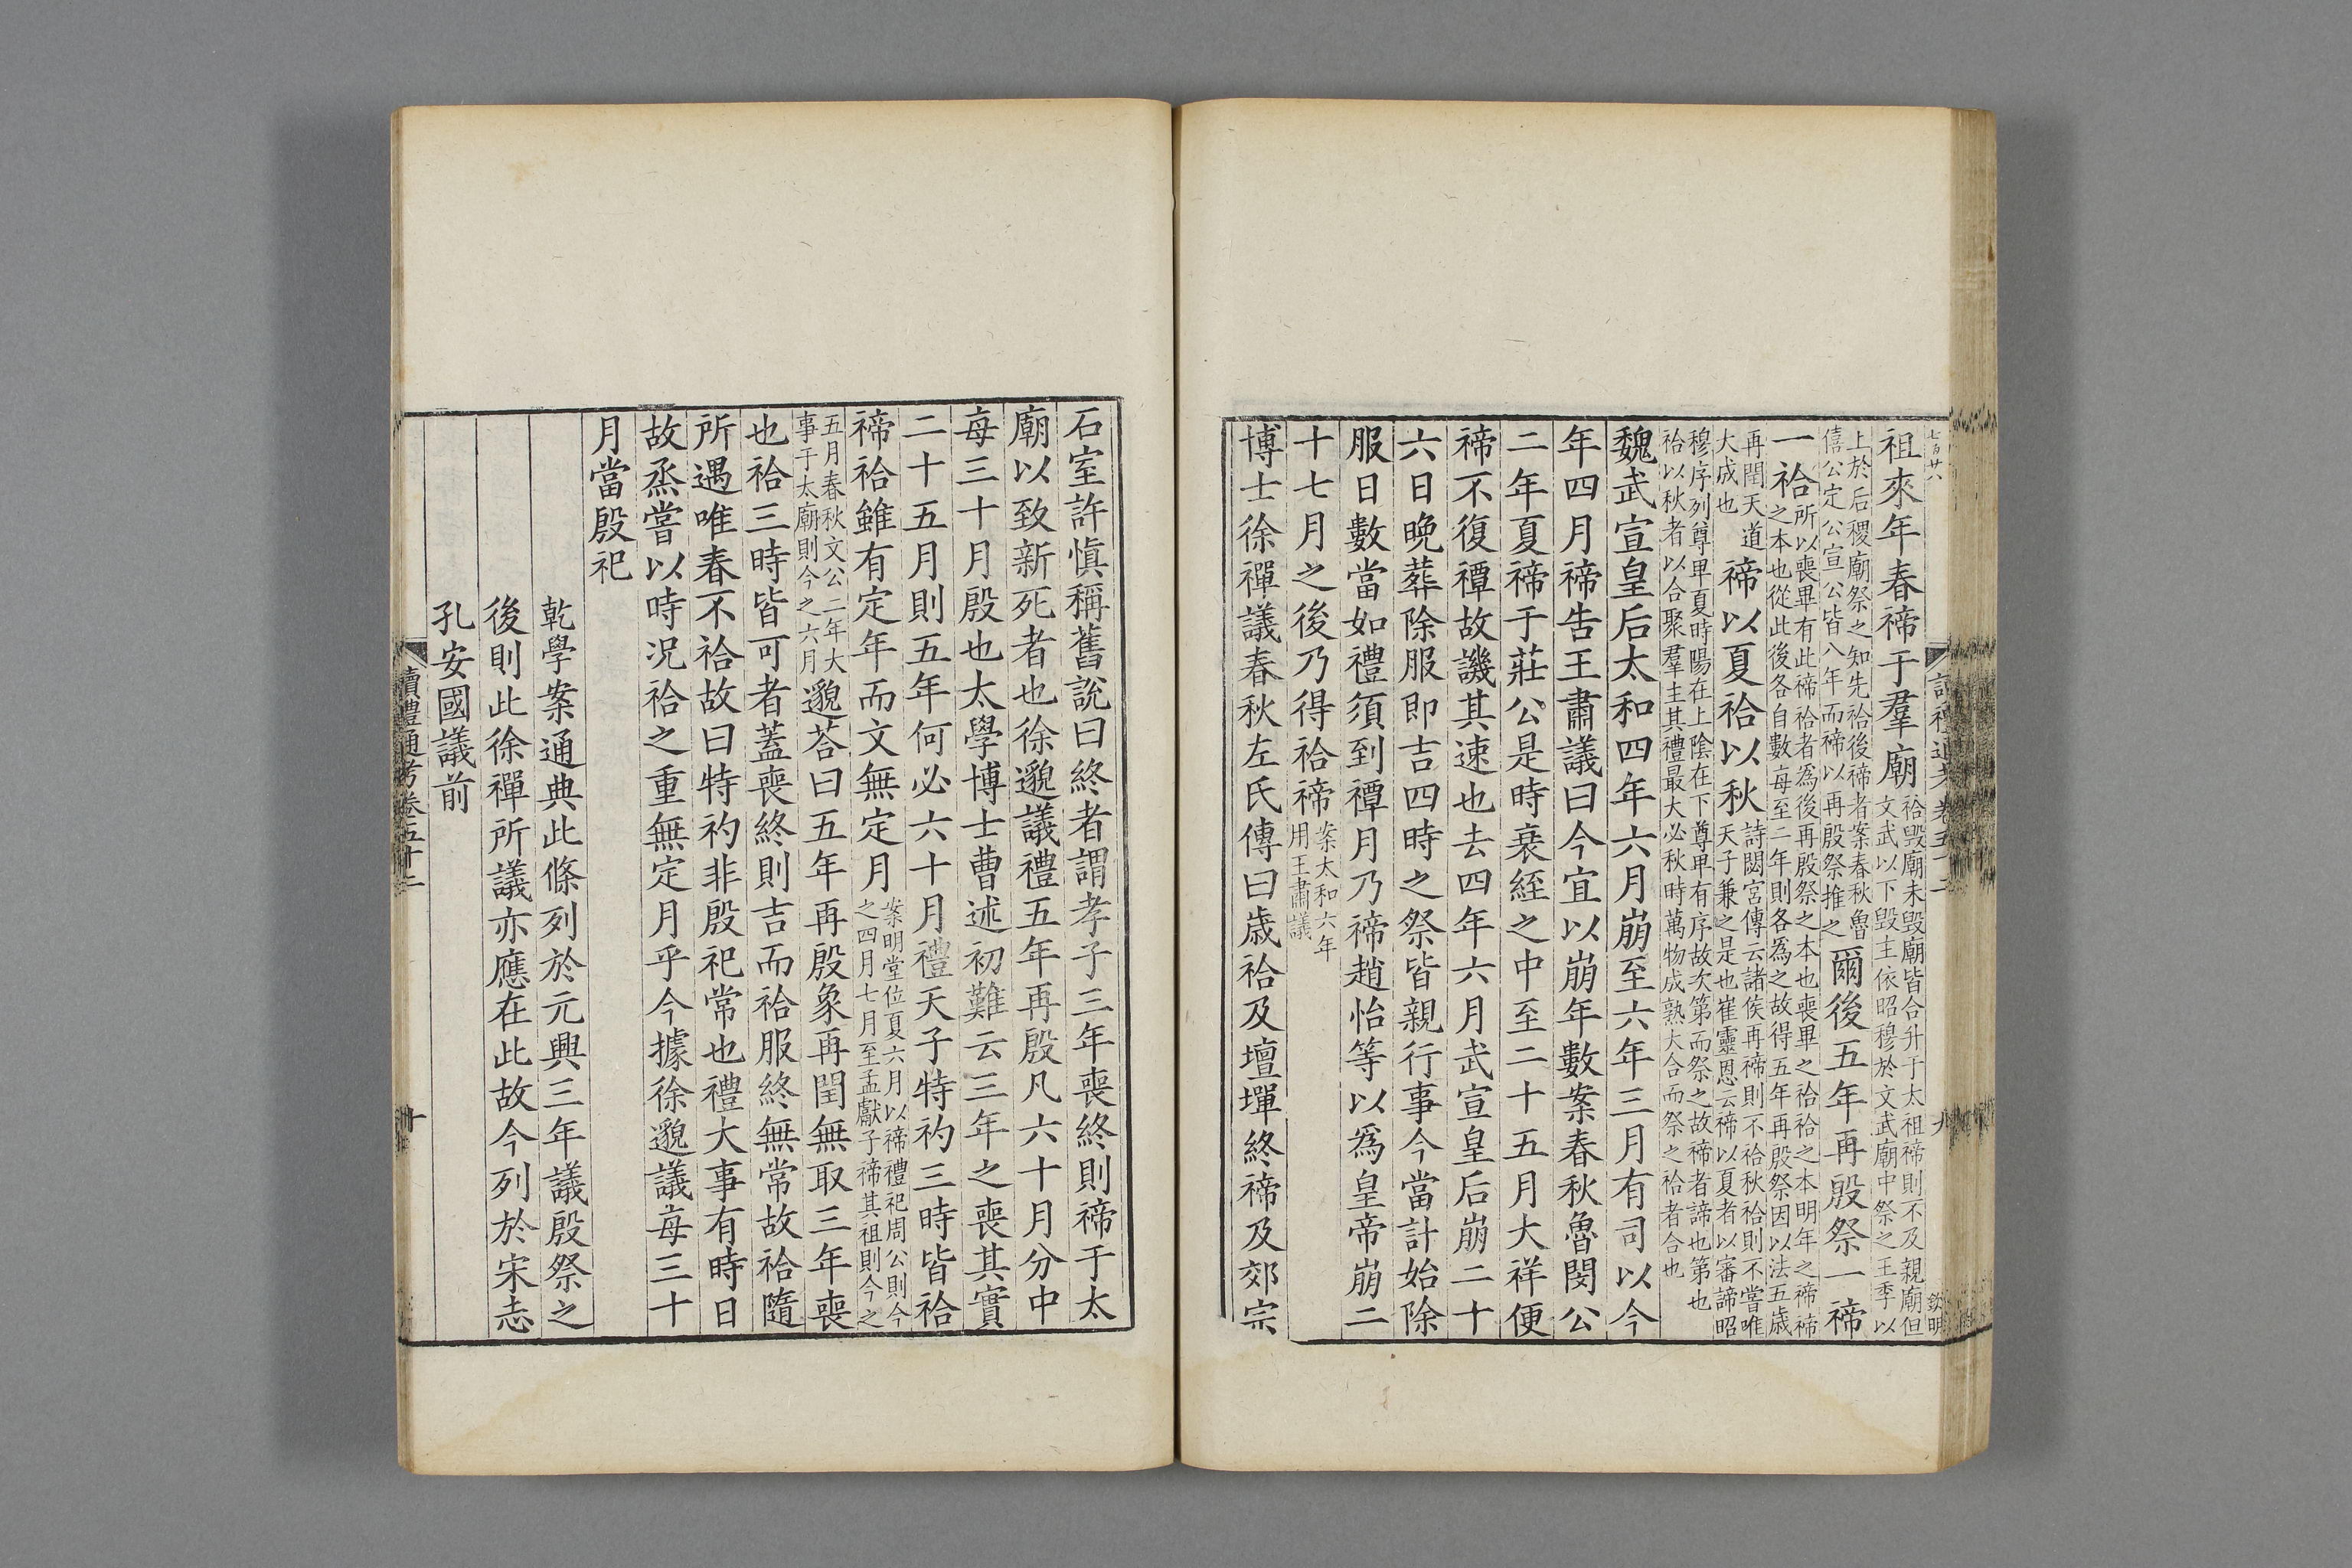 七百廿八
讀禮通考卷五十二
九
欽明
祖來年春禘于羣廟祫毀廟未毀廟皆合升于太祖禘則不及親廟但
文武以下毀主依昭穆於文武廟中祭之王季以
上於后稷廟祭之知先祫後禘者案春秋魯
僖公定公宣公皆八年而禘以再殷祭推之爾後五年再殷祭一禘
一祫所以喪畢有此禘祫者爲後再殷祭之本也喪畢之祫祫之本明年之禘禘
之本也從此後各自數每至二年則各爲之故得五年再殷祭因以法五歲
再閏天道
大成也禘以夏祫以秋詩閟宮傳云諸侯再禘則不祫秋祫則不嘗唯
天子兼之是也崔靈恩云禘以夏者以審諦昭
穆序列尊卑夏時陽在上陰在下尊卑有序故次第而祭之故禘者諦也第也
祫以秋者以合聚羣主其禮最大必秋時萬物成熟大合而祭之祫者合也
魏武宣皇后太和四年六月崩至六年三月有司以今
年四月禘告王肅議曰今宜以崩年數案春秋魯閔公
二年夏禘于莊公是時衰絰之中至二十五月大祥便
禘不復禫故譏其速也去四年六月武宣皇后崩二十
六日晚葬除服即吉四時之祭皆親行事今當計始除
服日數當如禮須到禫月乃禘趙怡等以爲皇帝崩二
十七月之後乃得祫禘案太和六年
用王肅議
博士徐禪議春秋左氏傳曰歲祫及壇墠終禘及郊宗
石室許慎稱舊說曰終者謂孝子三年喪終則禘于太
廟以致新死者也徐邈議禮五年再殷凡六十月分中
每三十月殷也太學博士曹述初難云三年之喪其實
二十五月則五年何必六十月禮天子特礿三時皆祫
禘祫雖有定年而文無定月案明堂位夏六月以禘禮祀周公則今
之四月七月至孟獻子禘其祖則今之
五月春秋文公二年大
事于太廟則今之六月邈荅曰五年再殷象再閏無取三年喪
也祫三時皆可者蓋喪終則吉而祫服終無常故祫隨
所遇唯春不祫故曰特礿非殷祀常也禮大事有時日
故烝嘗以時況祫之重無定月乎今據徐邈議每三十
月當殷祀
乾學案通典此條列於元興三年議殷祭之
後則此徐禪所議亦應在此故今列於宋志
孔安國議前
讀禮通考卷五十二
十